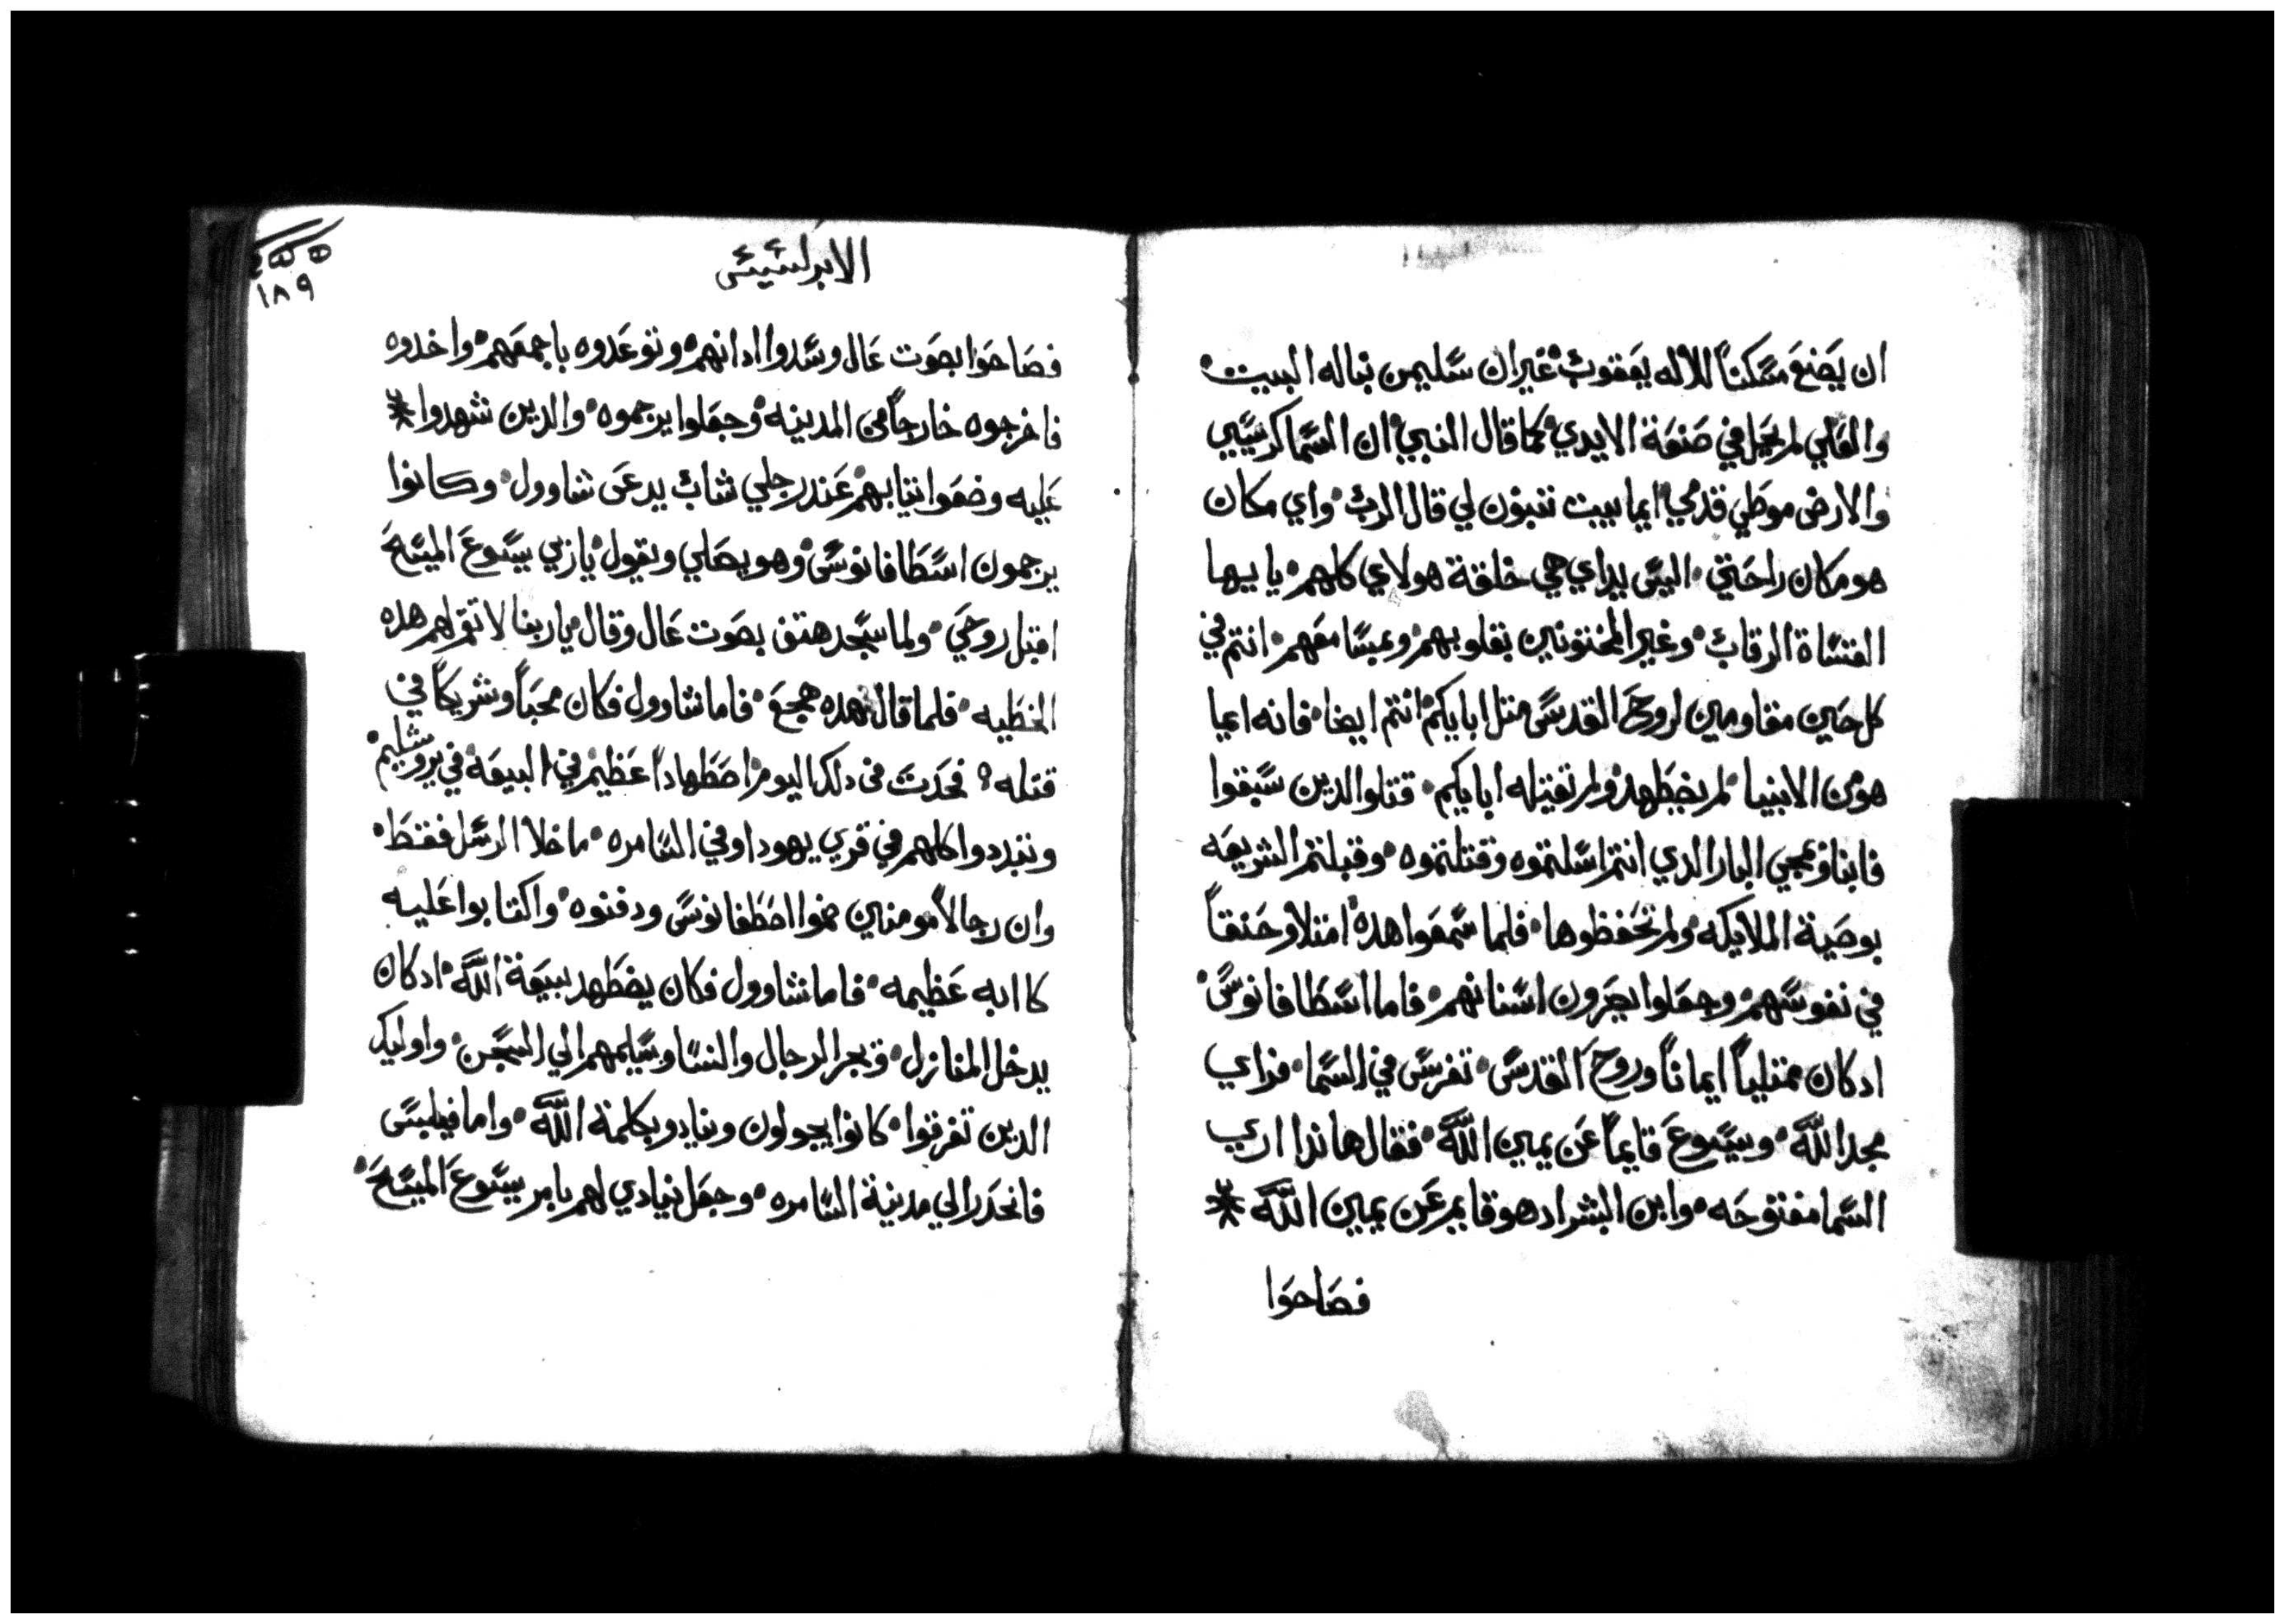 ان يصنع مسكناً للاله يعقوب غير ان سليمن بنا له البيت
والعلي لم يحل في صنعة الايدي كما قال النبي ان السما كرسيي
والارض موطي قدمي ايما بيت تنبون لي قال الرب واي مكان
هو مكان راحتي اليس يداي هي خلقة هولاي كلهم يا يها
القساة الرقاب وغير المختونين بقلوبهم وبمسامعهم انتم في
كل حين مقاومين لروح القدس متل ابايكم انتم ايضا فانه ايما
هو من الانبيا لم يضطهد ولم تقتله ابايكم قتلوا الدين سبقوا
فانباو بمجي البار الدي انتم اسلمتوه وقتلتموه وقبلتم الشريعه
بوصية الملايكه ولم تحفظوها فلما سمعوا هده امتلاو حنقاً
في نفوسهم وجعلوا يصرون اسنانهم فاما اسطافانوس
ادكان ممتلياً ايماناً وروح القدس تفرس في السما فراي
مجد الله ويسوع قايماً عن يمين الله فقال هاندا اري
السما مفتوحه وابن البشر ادهو قايم عن يمين الله
فصاحوا
الابركسيس
١٨٩
فصاحوا بصوت عال وسدوا ادانهم وتوعدوه باجمعهم واخدوه
فاخرجوه خارجاً من المدينه وجعلوا يرجموه والدين شهدوا
عليه وضعوا تيابهم عند رجلي شاب يدعى شاوول وكانوا
يرجمون اسطافانوس وهو يصلي ويقول يا ربي يسوع المسيح
اقبل روحي ولما سجد هتف بصوت عال وقال يا ربنا لا تقم لهم هده
الخطيه فلما قال هده هجع فاما شاوول فكان محباً وشريكاً في
قتله فحدت في دلك اليوم اضطهاداً عظيم في البيعة في يروشليم
وتبددوا كلهم في قري يهودا وفي السامره ما خلا الرسل فقط
وان رجالاً مومنين ضموا اصطفانوس ودفنوه واكتابوا عليه
كاابه عظيمه فاما شاوول فكان يضطهد بيعة الله ادكان
يدخل المنازل ويجر الرجال والنسا ويسلمهم الي السجن واوليك
الدين تفرقوا كانوا يجولون وينادو بكلمة الله واما فيلبس
فانحدر الي مدينة السامره وجعل ينادي لهم بامر يسوع المسيح